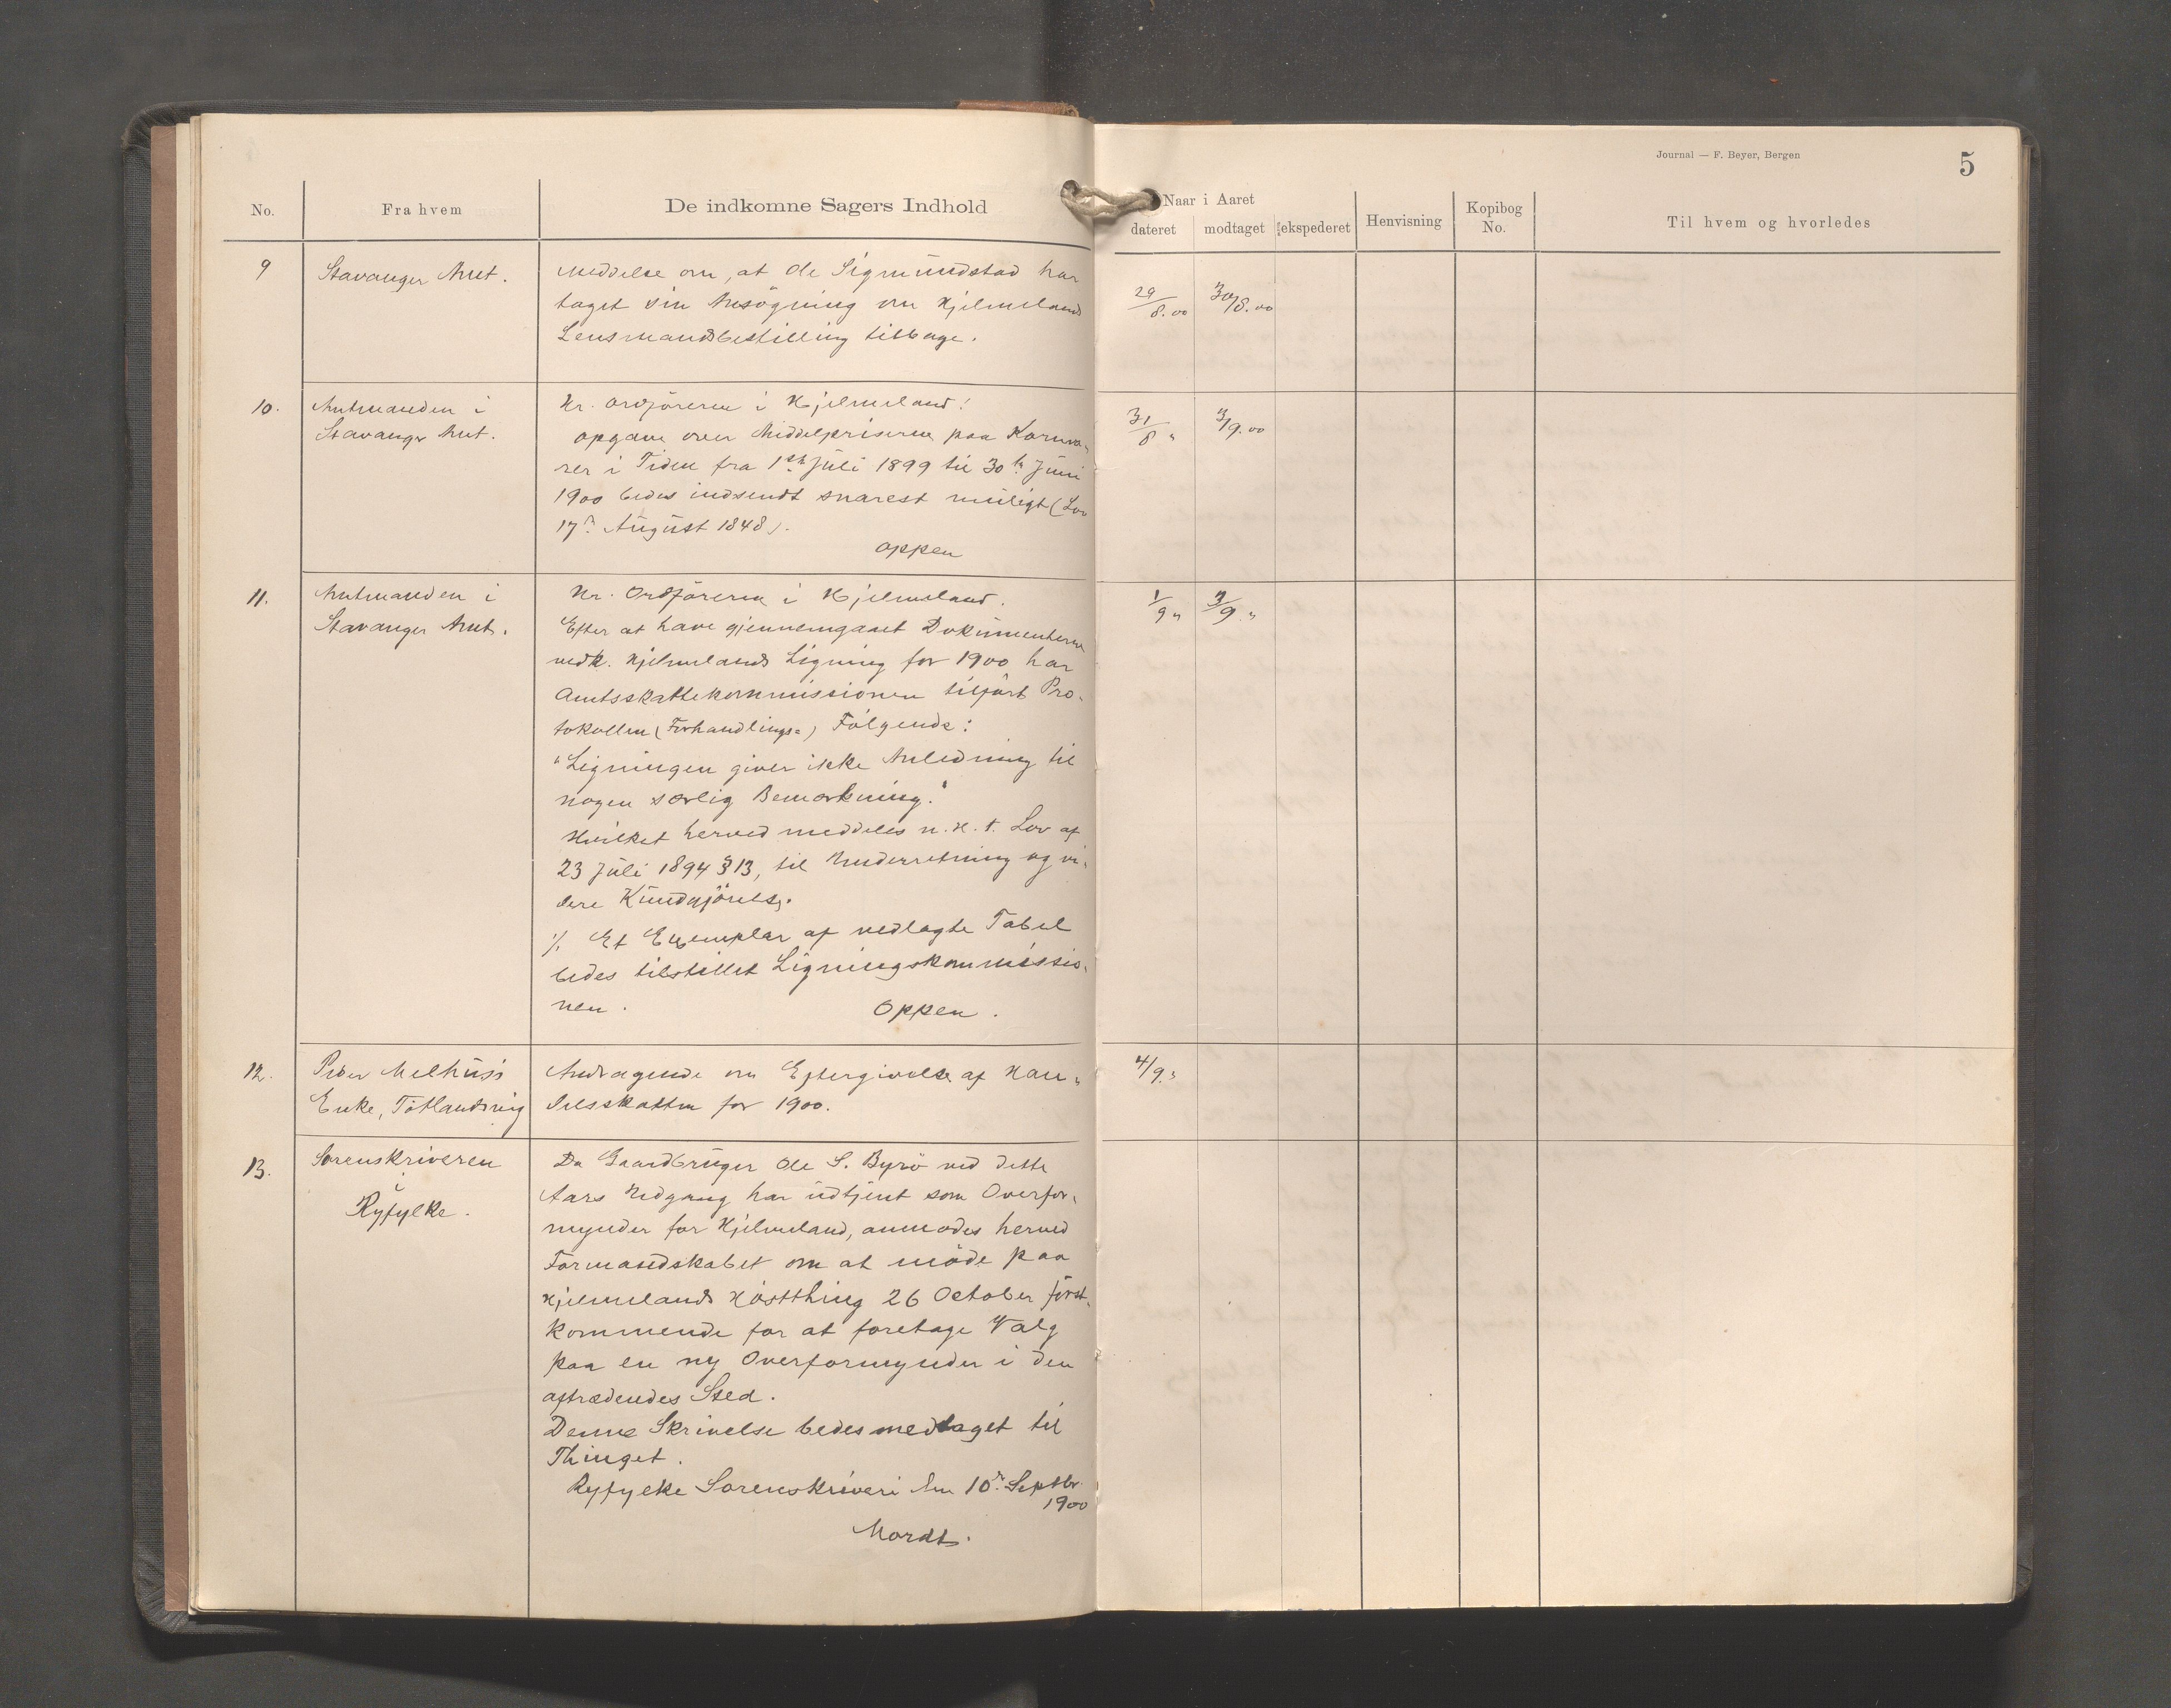 Journal — F. Beyer, Bergen
5
No.
Fra hvem
De indkomne Sagers Indhold
Naar i Aaret
dateret
modtaget
ekspederet
Henvisning
Kopibog
No.
Til hvem og hvorledes
9
Stavanger Amt.
Meddelse om, at Ole Sigmundstad har
taget sin Ansøgning om Hjelmelands
Lensmandsbestilling tilbage.
29/8.00
30/8.00
10.
Amtmanden i
Stavanger Amt.
Hr. Ordføreren i Hjelmeland!
Opgave over Middelpriserne paa Kornva-
rer i Tiden fra 1ste Juli 1899 til 30te Juni
1900 bedes indsendt snarest muligt (Lov
17de August 1848).
Oppen
31/8 "
3/9.00
11.
Amtmanden i
Stavanger Amt.
Hr. Ordføreren i Hjelmeland.
Efter at have gjennemgaaet Dokumenterne
vedk. Hjelmelands Ligning for 1900 har
Amtsskattekommissionen tilført Pro-
tokollen (Forhandlings-) Følgende:
"Ligningen giver ikke Anledning til
nogen særlig Bemærkning."
Hvilket herved meddeles n. H. t. Lov af
23 Juli 1894 § 13, til Underretning og vi-
dere Kundgjørelse.
./. Et Exemplar af vedlagte Tabel
bedes tilstillet Ligningskommissio-
nen.
Oppen.
1/9 "
3/9 "
12.
Peder Melhus's
Enke, Tøtlandsvig
Andragende om Eftergivelse af Han-
delsskatten for 1900.
4/9 "
13.
Sorenskriveren
i
Ryfylke.
Da Gaardbruger Ole S. Byrø ved dette
Aars Udgang har udtjent som Overfor-
mynder for Hjelmeland, anmodes herved
Formandskabet om at møde paa
Hjelmelands Høstthing 26 October først-
kommende for at foretage Valg
paa en ny Overformynder i den
aftrædendes Sted.
Denne Skrivelse bedes medtaget til
Thinget.
Ryfylke Sorenskriveri den 10de Septbr.
1900